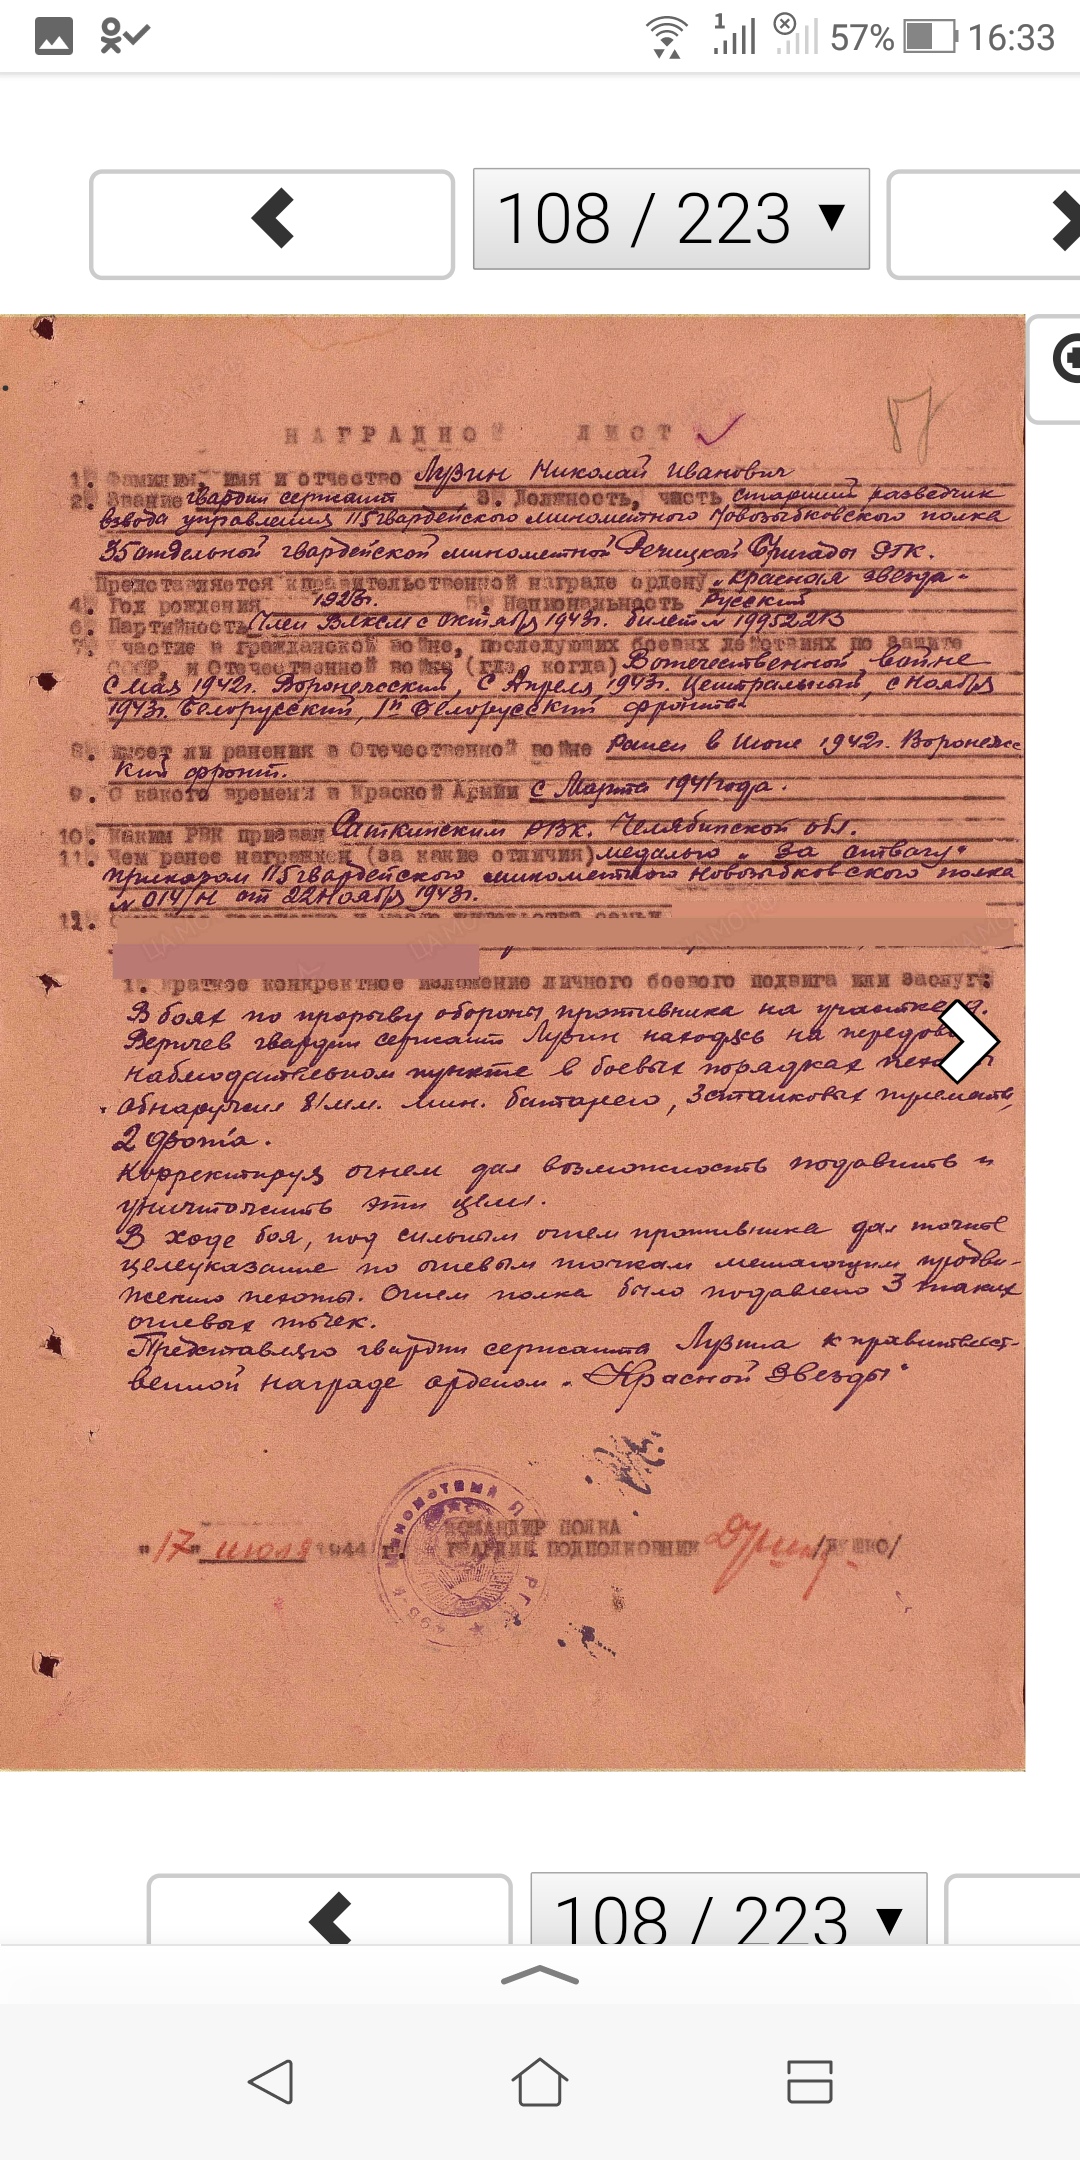 1 57% 16:33
108 / 223 ▼
87
НАГРАДНОЙ ЛИСТ
1. Фамилия, имя и отчество Лузин Николай Иванович
2. Звание гвардии сержант 3. Должность, часть старший разведчик
взвода управления 115 гвардейского минометного Новозыбковского полка
35 отдельной гвардейской минометной Речицкой Бригады РГК.
Представляется к правительственной награде ордену "Красная звезда"
4. Год рождения 1923г. 5. Национальность Русский
6. Партийность Член ВЛКСМ с Октября 1943г. билет № 19952213
7. Участие в гражданской войне, последующих боевых действиях по защите
СССР, и Отечественной войне (где, когда) В отечественной войне
С мая 1942г. Воронежский, С Апреля 1943г. Центральный, с Ноября
1943г. Белорусский, 1й Белорусский фронты.
8. Имеет ли ранения в Отечественной войне Ранен в Июне 1942г. Воронежс
кий фронт.
9. С какого времени в Красной Армии с Марта 1941 года.
10. Каким РВК призван Саткинским РВК. Челябинской обл.
11. Чем ранее награжден (за какие отличия) медалью "За отвагу"
приказом 115 гвардейского минометного Новозыбковского полка
№ 014/н от 22 Ноября 1943г.
12.
1. Краткое конкретное изложение личного боевого подвига или заслуг:
В боях по прорыву обороны противника на участке
гвардии сержант Лузин находясь на
наблюдательном пункте в боевых порядках
обнаружил 81мм. мин. батарею, 3 станковых пулемета,
2 дзота.
Корректируя огнем дал возможность подавить и
уничтожить эти цели.
В ходе боя, под сильным огнем противника дал точное
целеуказание по огневым точкам мешающим продви-
жению пехоты. Огнем полка было подавлено 3 таких
огневых точек.
Представляю гвардии сержанта Лузина к правительст-
венной награде орденом "Красной Звезды"
КОМАНДИР ПОЛКА
"17" июля 1944 г. ГВАРДИИ ПОДПОЛКОВНИК /ПУШКО/
108 / 223 ▼